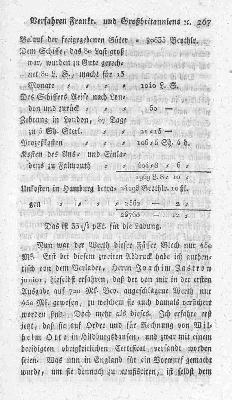 Verfahren Frankr. und Großbritanniens ꝛc. 267
Belauf der freigegebenen Güter 20633 Rthlr.
Dem Schiffe, das 80 Last groß
war, wurden zu Gute gerech-
net 80 L. S., macht für 13
Monate 1040 L. S.
Des Schiffers Reise nach Lon-
don und zurück 60 —
Zehrung in London, 87 Tage
zu 5 Sh. Sterl. 21 = 15 —
Prozeßkosten 106 = 5 Sh. 4 d.
Kosten des Aus- und Einla-
dens zu Falmouth
Unkosten in Hamburg betra-
gen
Das ist 33½ pCt. für die Ladung.
Nun war der Werth dieser Fässer Blech nur 450
Mk. Erst bei diesem zweiten Abdruck habe ich authen-
tisch von dem Verlader, Herrn Joachim Jastrow
junior, hieselbst erfahren, daß der von mir in der ersten
Ausgabe auf 700 Mk. Bco. angeschlagene Werth nur
450 Mk. gewesen, zu welchen sie auch damals versichert
worden sind. Doch mehr als dieses. Ich erfahre erst
jetzt, daß sie auf Ordre und für Rechnung von Wil-
helm Otte in Hildburghausen, und zwar mit einem
dortigen obrigkeitlichen Certificat versandt worden
seien. Was nun in England für ein Vorwurf gemacht
wurde, um sie dennoch zu condemniren, ist selbst dem